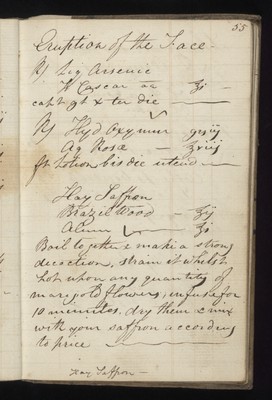 55
Eruption of the Face
Rx Liq Arsenic
Tr Cascar aa ʒi
capt gt x ter die
Rx Hyd. Oxymur griij
Aq Rosæ
ft Lotion bis die utend
Hay Saffron
Brazil Wood ʒij
Alum ʒi
Boil together & make a strong
decoction, strain it whilst
hot upon any quantity of
marigold flowers, infuse for
10 minutes. dry them & mix
with your saffron according
to price
Hay Saffron